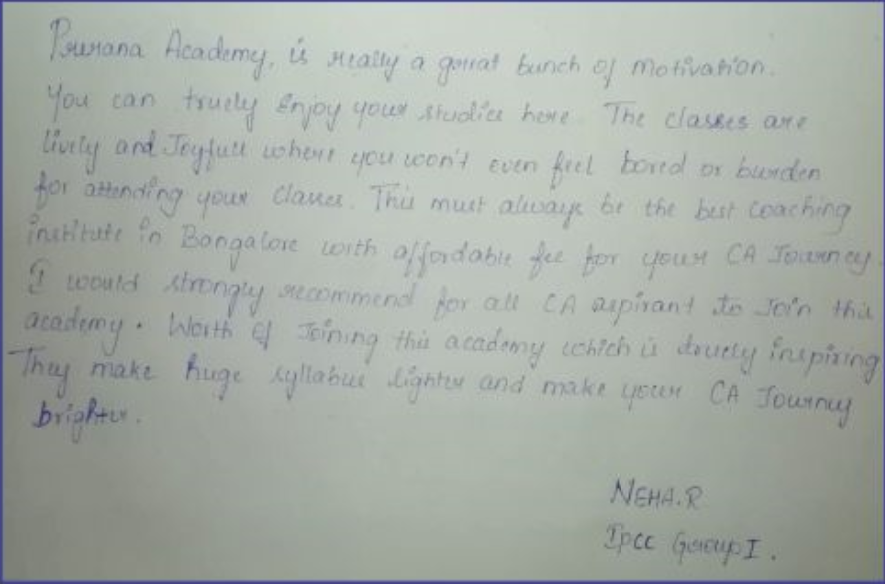 Prerana Academy, is really a great bunch of motivation.
You can truely Enjoy your studies here. The classes are
lively and Joyfull where you won't even feel bored or burden
for attending your classes. This must always be the best coaching
institute in Bangalore with affordable fee for your CA Journey.
I would strongly recommend for all CA aspirant to Join this
academy. Worth of Joining this academy which is truely inspiring
They make huge syllabus lighter and make your CA Journey
brighter.
NEHA.R
Ipcc Group I.